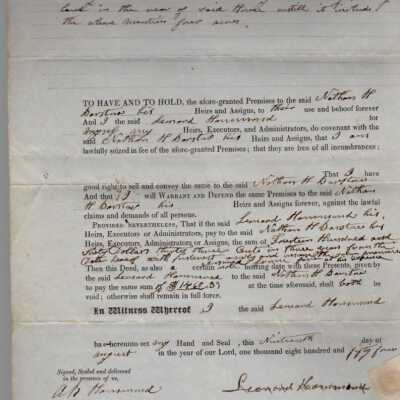 land in the rear of said House until it includes
the above mention four acres.
TO HAVE AND TO HOLD, the afore-granted Premises to the said Nathan H
Barstow his Heirs and Assigns, to their use and behoof forever
And I the said Leonard Hammond for
myself my Heirs, Executors, and Administrators, do covenant with the
said Nathan H Barstow his Heirs and Assigns, that I am
lawfully seized in fee of the afore-granted Premises; that they are free of all incumbrances;
That I have
good right to sell and convey the same to the said Nathan H Barstow
And that I will WARRANT AND DEFEND the same Premises to the said Nathan
H Barstow his Heirs and Assigns forever, against the lawful
claims and demands of all persons.
PROVIDED NEVERTHELESS, That if the said Leonard Hammond his
Heirs, Executors or Administrators, pay to the said Nathan H Barstow his
Heirs, Executors, Administrators or Assigns, the sum of Fourteen Hundred and
Sixty Dollars thirty three Cents in three years from the
date hereof with interest
Then this Deed, as also a certain note bearing date with these Presents, given by
the said Leonard Hammond to the said Nathan H Barstow
to pay the same sum of $1460.33 at the time aforesaid, shall both be
void; otherwise shall remain in full force.
In Witness Whereof I the said Leonard Hammond
hereunto set my Hand and Seal, this Nineteenth day of
August in the year of our Lord, one thousand eight hundred and fifty four
Signed, Sealed and delivered
in the presence of us,
Hammond
Leonard Hammond